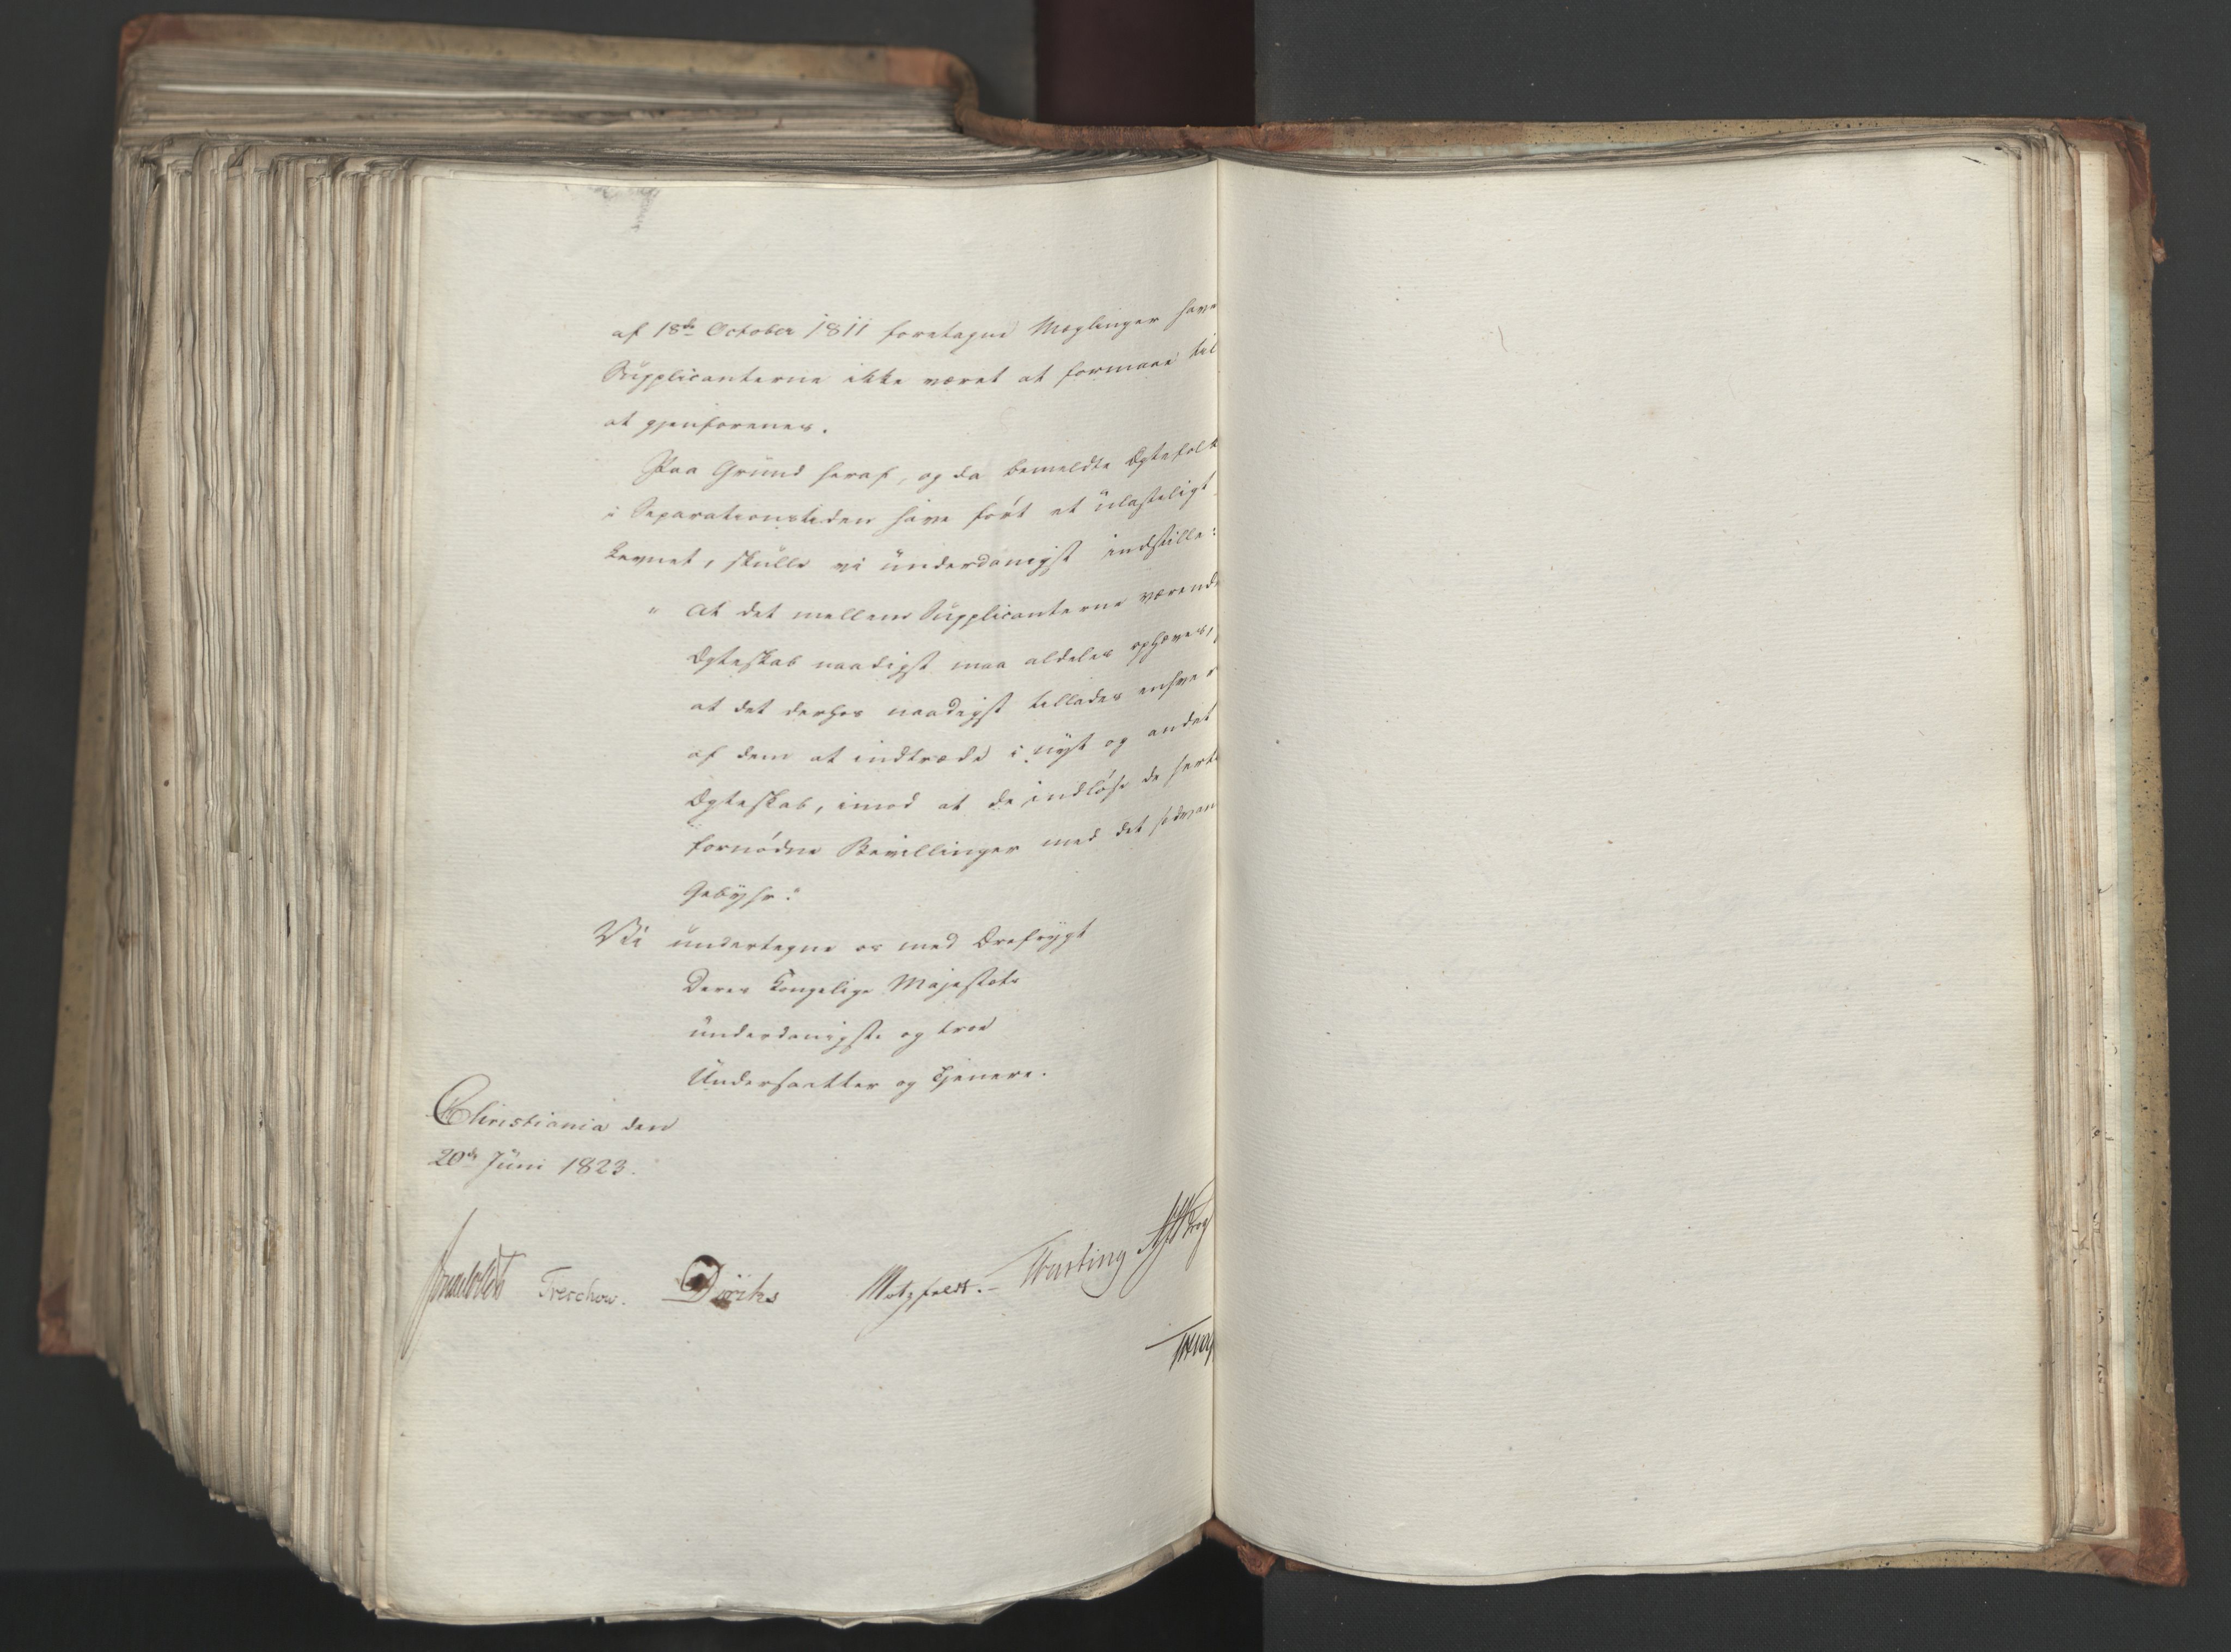 af 18de October 1811 foretagne Mæglinger have
Supplicanterne ikke været at formaae til
at gjenforenes.
Paa Grund heraf, og da bemeldte Ægtefolk
i Separationstiden have ført et ulasteligt
Levnet, skulle vi underdanigst indstille:
" At det mellem Supplicanterne værende
Ægteskab naadigst maa aldeles ophæves,
at det derhos naadigst tillades enhver
af dem at indtræde i nyt og andet
Ægteskab, imod at de indløse de hertil
fornødne Bevillinger med det sædvan
Gebyhr."
Vi undertegne os med Ærefrygt
Deres Kongelige Majestæts
underdanigste og troe
Undersaatter og Tjenere.
Christiania den
20de Juni 1823.
Treschow. Diriks Motzfeldt.